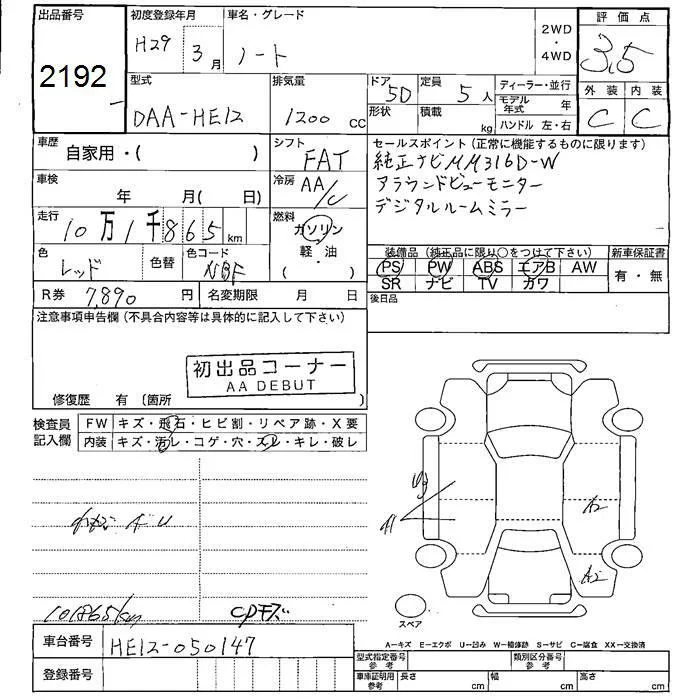 出品番号
2192
初度登録年月
H29 3月
車名・グレード
ノート
2WD
・
4WD
評価点
3.5
外装 内装
C C
型式
DAA-HE12
排気量
1200 cc
ドア 5D
形状
定員 5人
積載 kg
ディーラー・並行
モデル年式 年
ハンドル 左・右
車歴
自家用・( )
シフト
FAT
セールスポイント(正常に機能するものに限ります)
純正ナビMM316D-W
アラウンドビューモニター
デジタルルームミラー
車検
年 月( 日)
冷房
AA/C
走行
10万1千865km
燃料
ガソリン
軽・油
( ・ )
色
レッド
色替
色コード
NBF
装備品(純正品に限り○をつけて下さい)
PS PW ABS エアB AW
SR ナビ TV カワ
新車保証書
有・無
R券 7,890円
名変期限 月 日
後日品
注意事項申告欄(不具合内容等は具体的に記入して下さい)
初出品コーナー
AA DEBUT
修復歴 有(箇所 )
検査員
記入欄
FW キズ・飛石・ヒビ割・リペア跡・X要
内装 キズ・汚レ・コゲ・穴・スレ・キレ・破レ
A2
A2
101865km
スペア
A-キズ E-エクボ U-凹み W-補修跡 S-サビ C-腐食 XX-交換済
車台番号
HE12-050147
登録番号
型式指定番号
参考
類別区分番号
参考
車庫証明用
参考
長さ cm
幅 cm
高さ cm